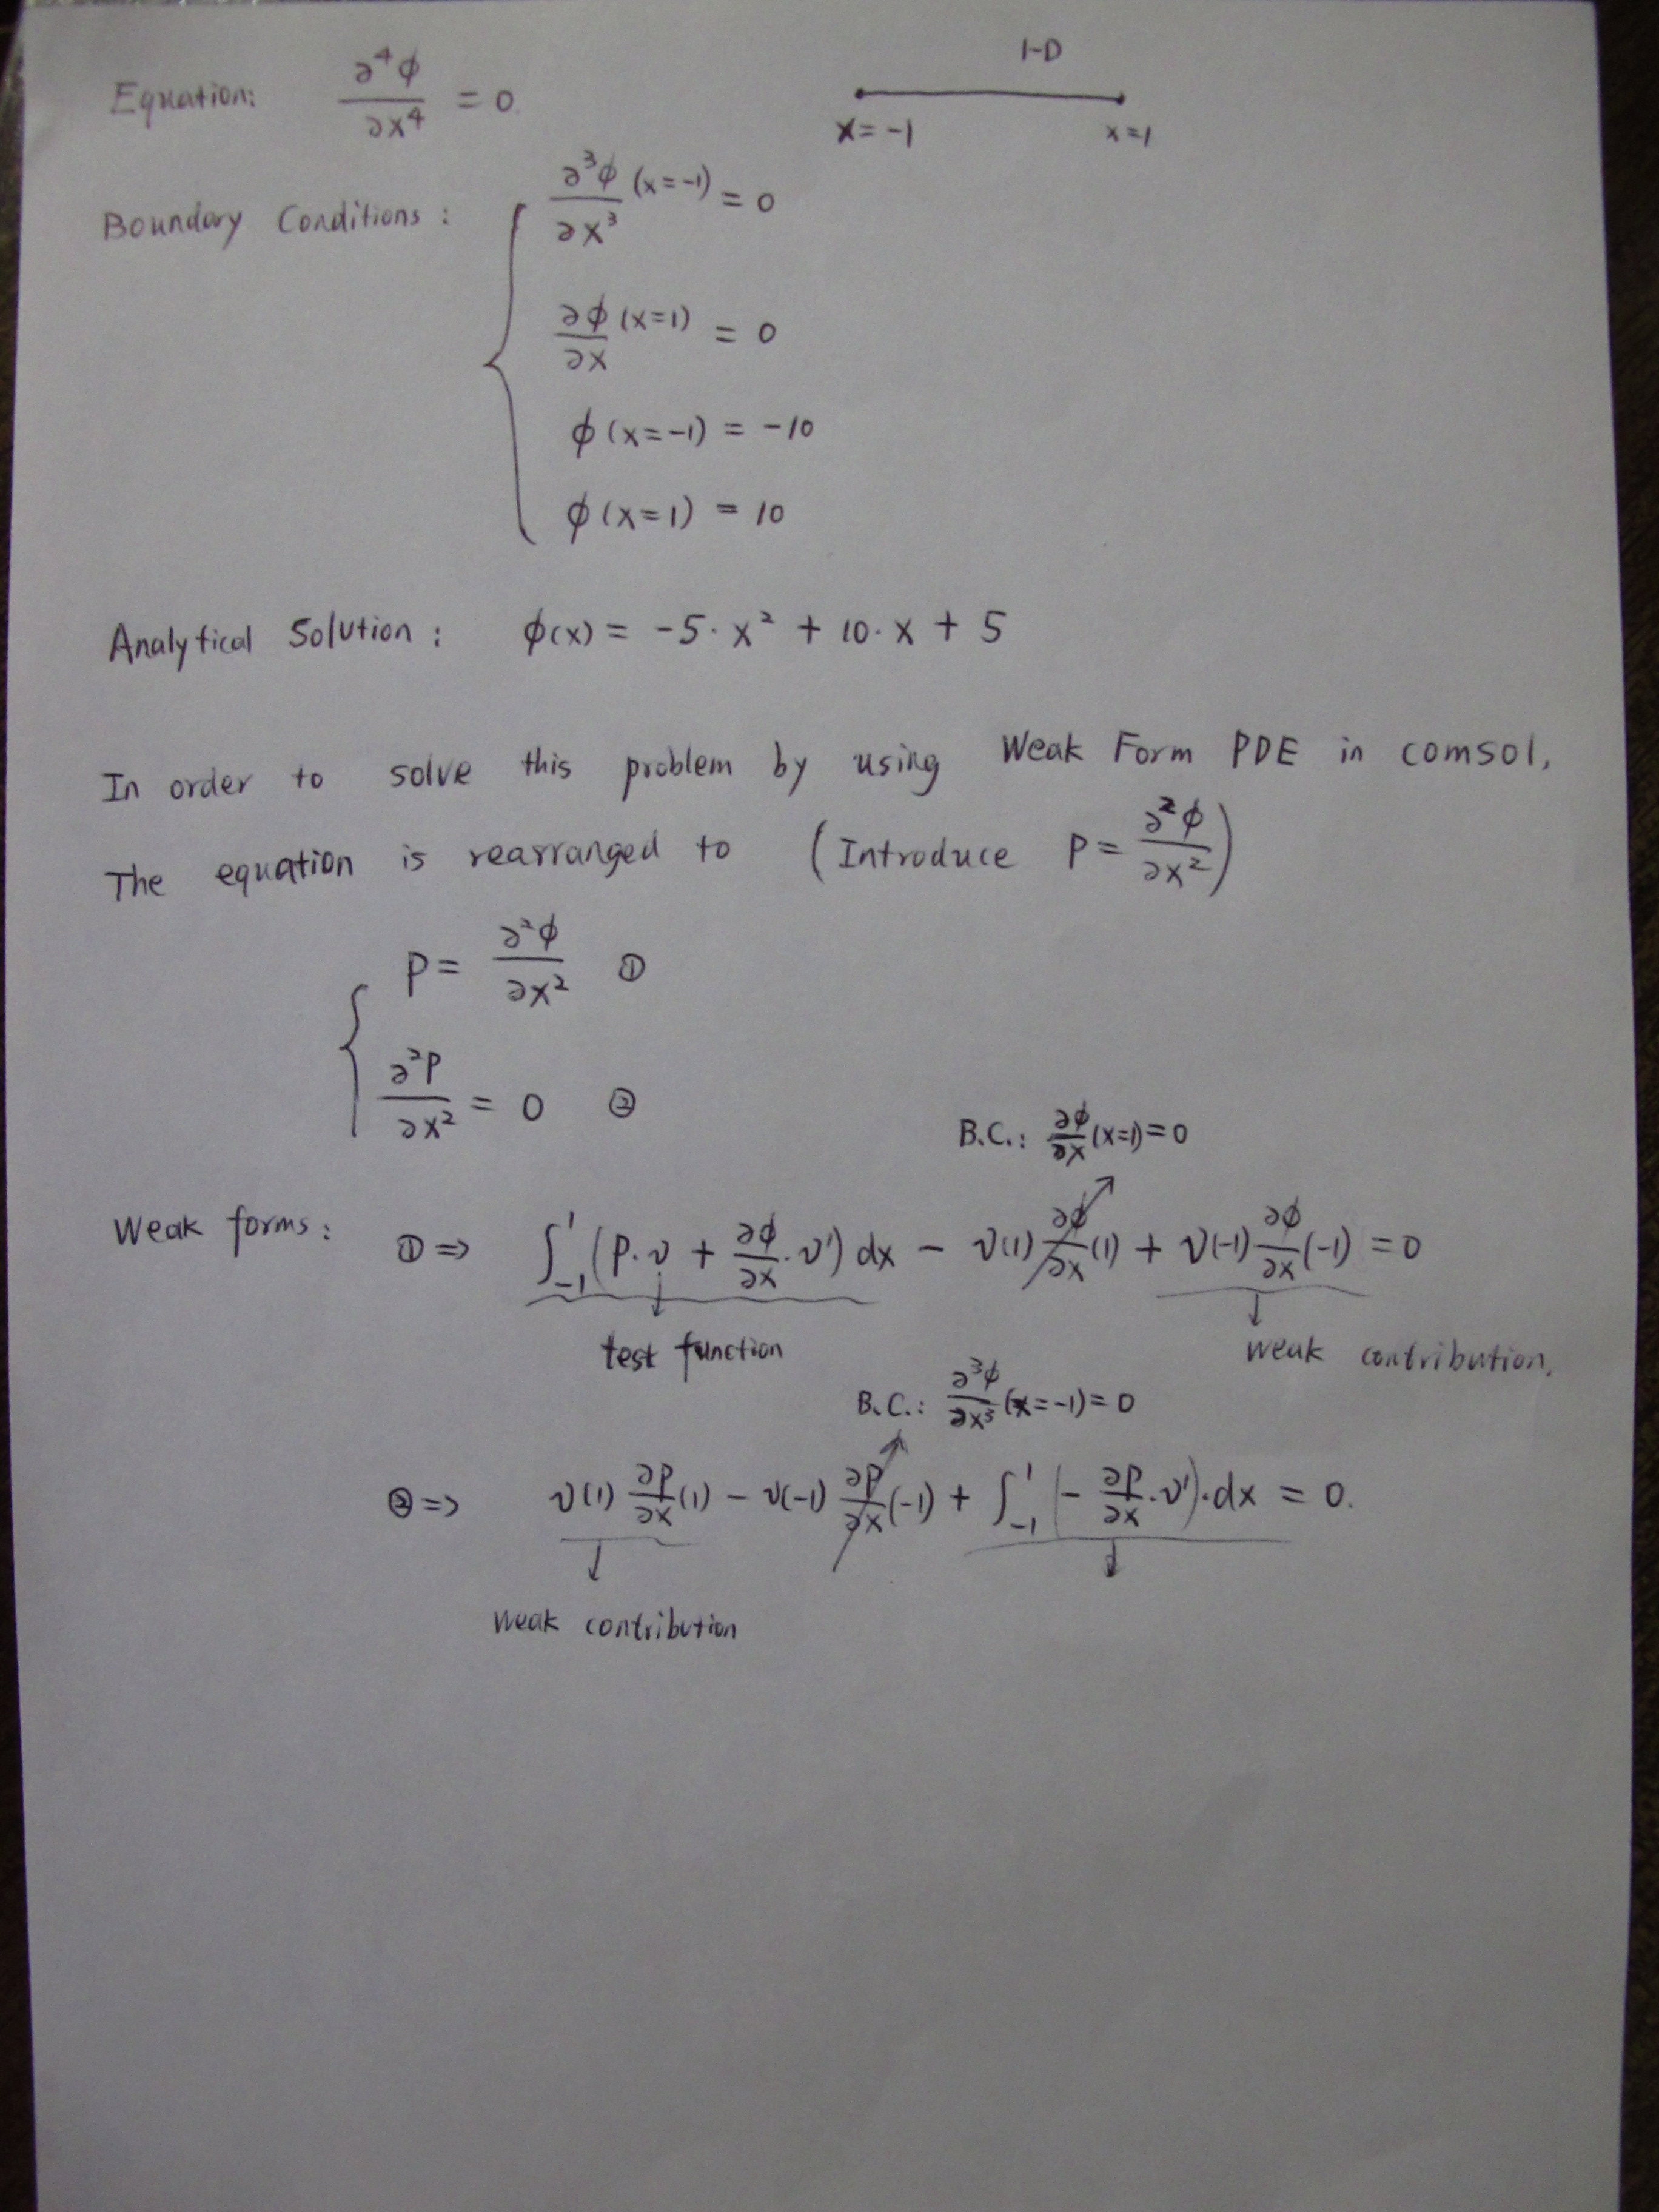 1-D
Equation: ∂⁴ϕ/∂x⁴ = 0.
x = -1 x = 1
Boundary Conditions : { ∂³ϕ/∂x³ (x = -1) = 0
∂ϕ/∂x (x=1) = 0
ϕ (x = -1) = -10
ϕ (x = 1) = 10
Analytical Solution : ϕ(x) = -5 · x² + 10 · x + 5
In order to solve this problem by using Weak Form PDE in comsol,
The equation is rearranged to (Introduce P = ∂²ϕ/∂x²)
{ P = ∂²ϕ/∂x² ①
∂²P/∂x² = 0 ②
B.C.: ∂ϕ/∂x (x=1) = 0
Weak forms : ① => ∫₋₁¹ (P · v + ∂ϕ/∂x · v') dx - v(1) ∂ϕ/∂x (1) + v(-1) ∂ϕ/∂x (-1) = 0
test function weak contribution.
B.C.: ∂³ϕ/∂x³ (x = -1) = 0
② => v(1) ∂P/∂x (1) - v(-1) ∂P/∂x (-1) + ∫₋₁¹ (- ∂P/∂x · v') · dx = 0.
weak contribution